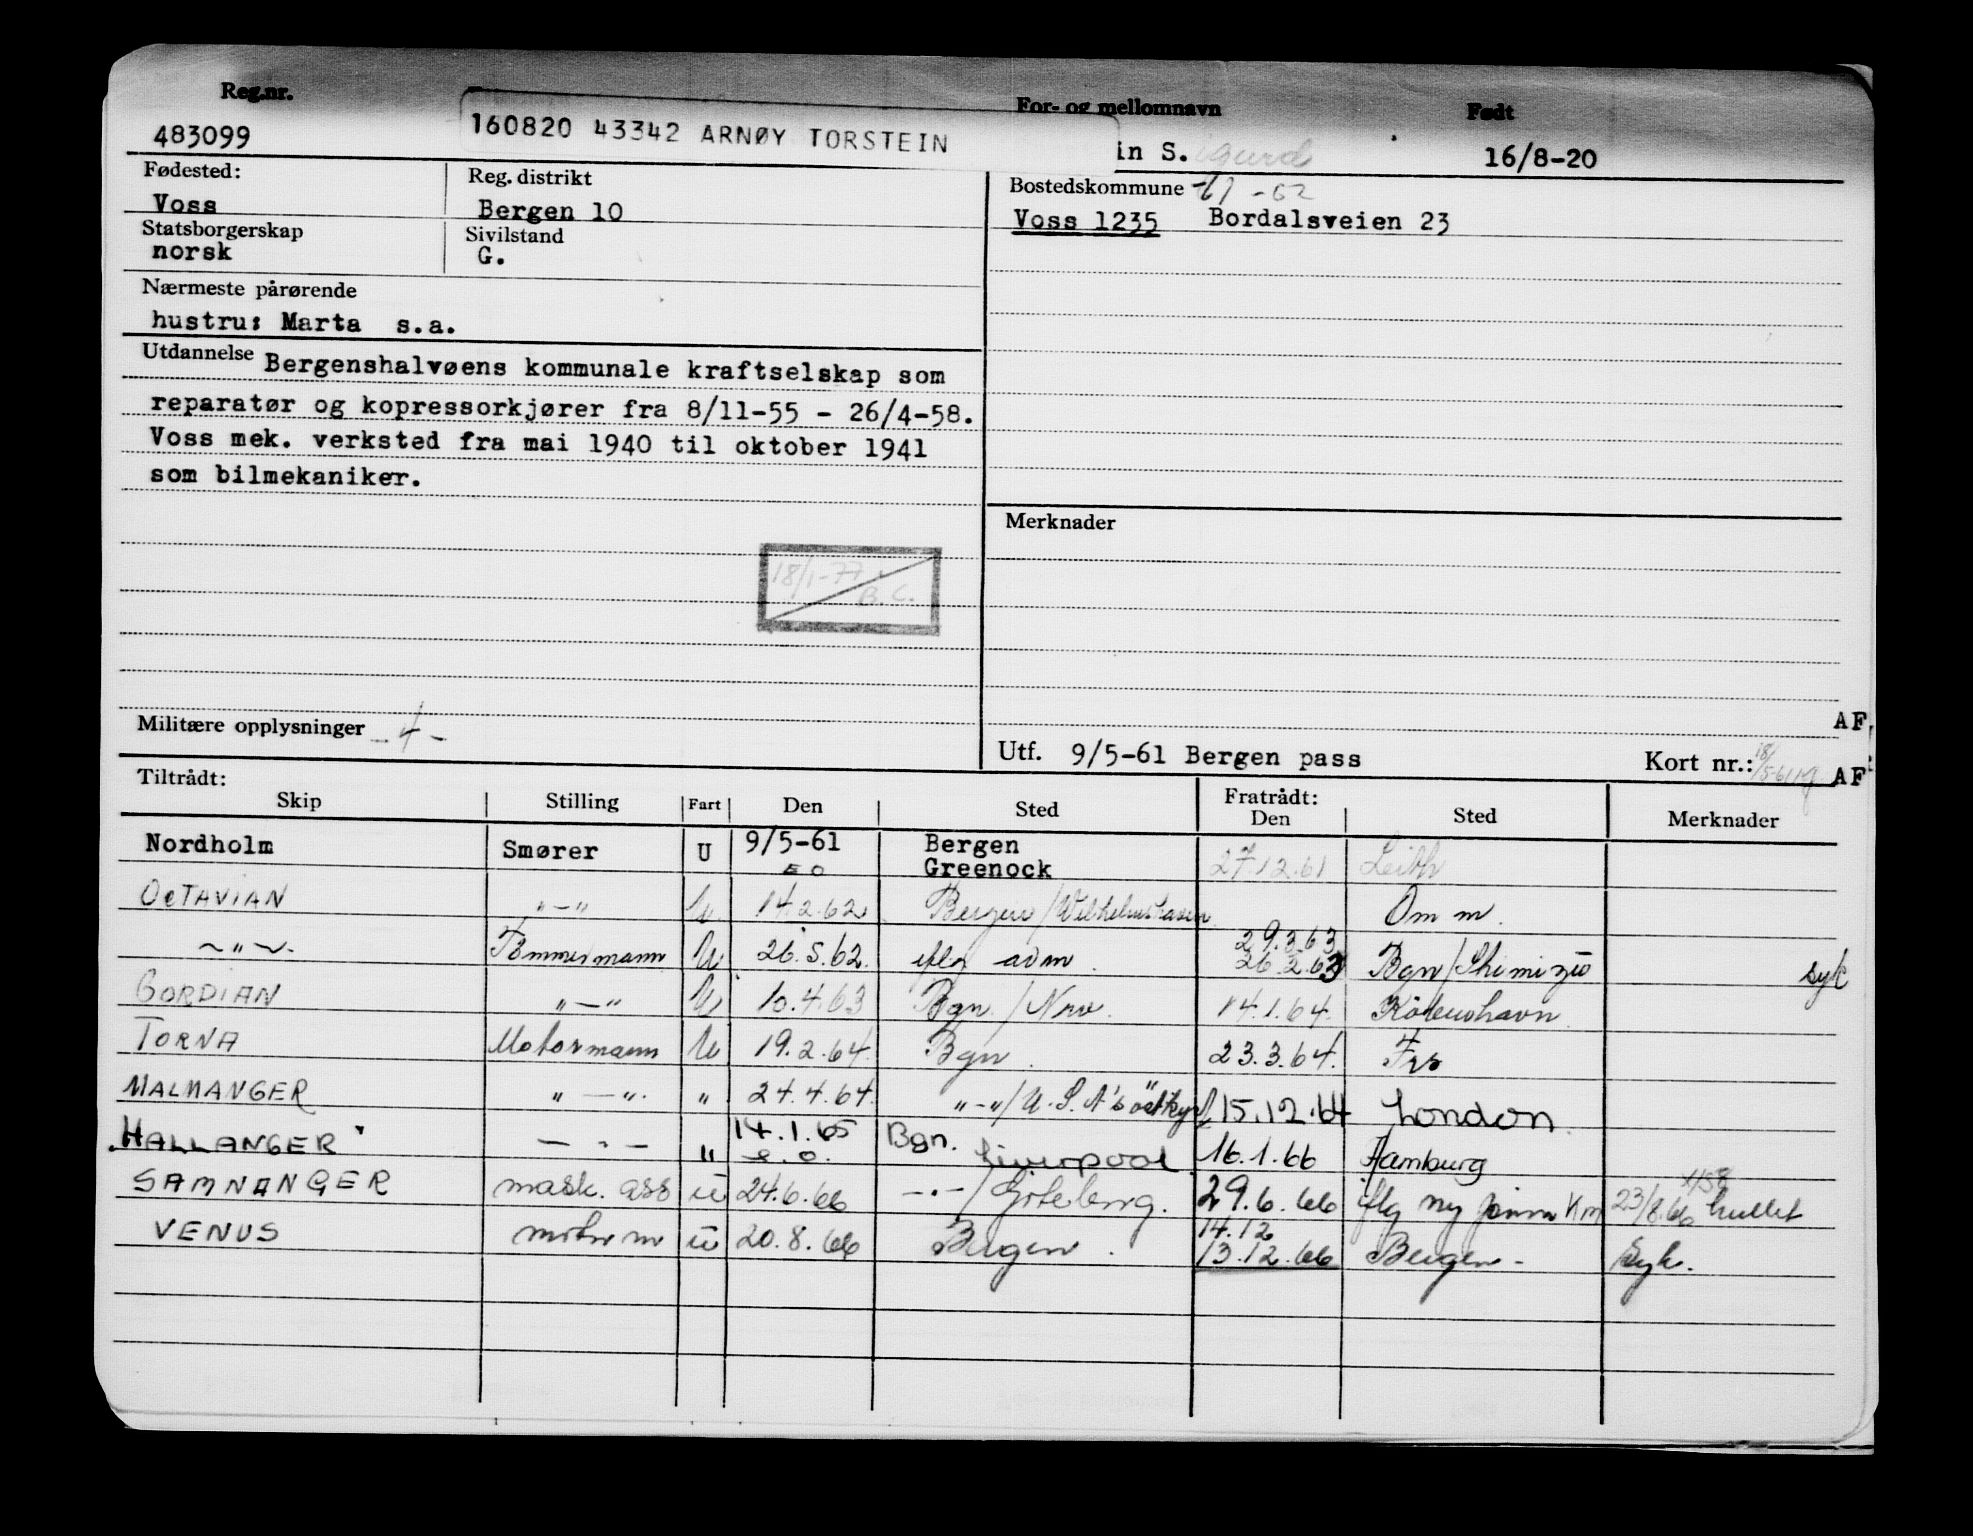 Reg.nr. For- og mellomnavn Født
483099 160820 43342 ARNØY TORSTEIN in S. 16/8-20
Fødested: Reg. distrikt Bostedskommune -61 -62
Voss Bergen 10 Voss 1235 Bordalsveien 23
Statsborgerskap Sivilstand
norsk G.
Nærmeste pårørende
hustru: Marta s.a.
Utdannelse Bergenshalvøens kommunale kraftselskap som
reparatør og kopressorkjører fra 8/11-55 - 26/4-58.
Voss mek. verksted fra mai 1940 til oktober 1941
som bilmekaniker.
Merknader
18/1-77
B.C.
Militære opplysninger
AF
Utf. 9/5-61 Bergen pass Kort nr.: AF
Tiltrådt: Fratrådt:
Skip Stilling Fart Den Sted Den Sted Merknader
Nordholm Smører U 9/5-61 Bergen
EO Greenock 27.12.61 Leith
OCTAVIAN "-" U 14.2.62 Bergen/Wilhelmshaven Om m.
~"~ Tømmermann U 26.5.62 iflg adm. 29.3.63
26.2.63 Bgn/Shimizu syk
GORDIAN "-" U 10.4.63 Bgn/Nrv. 14.1.64. København
TORNA Motormann U 19.2.64. Bgn. 23.3.64.
MALMANGER "-". " 24.4.64. "-"/U.S.A's östkyst 15.12.64 London.
"HALLANGER" - " - " 14.1.65 Bgn.
e.o. Liverpool. 16.1.66 Hamburg
SAMNANGER mask. ass u 24.6.66 -"-/Göteborg. 29.6.66 iflg ny 23/8.66 hullet
VENUS motorm u 20.8.66 Bergen. 14.12
13.12.66 Bergen- Syk.